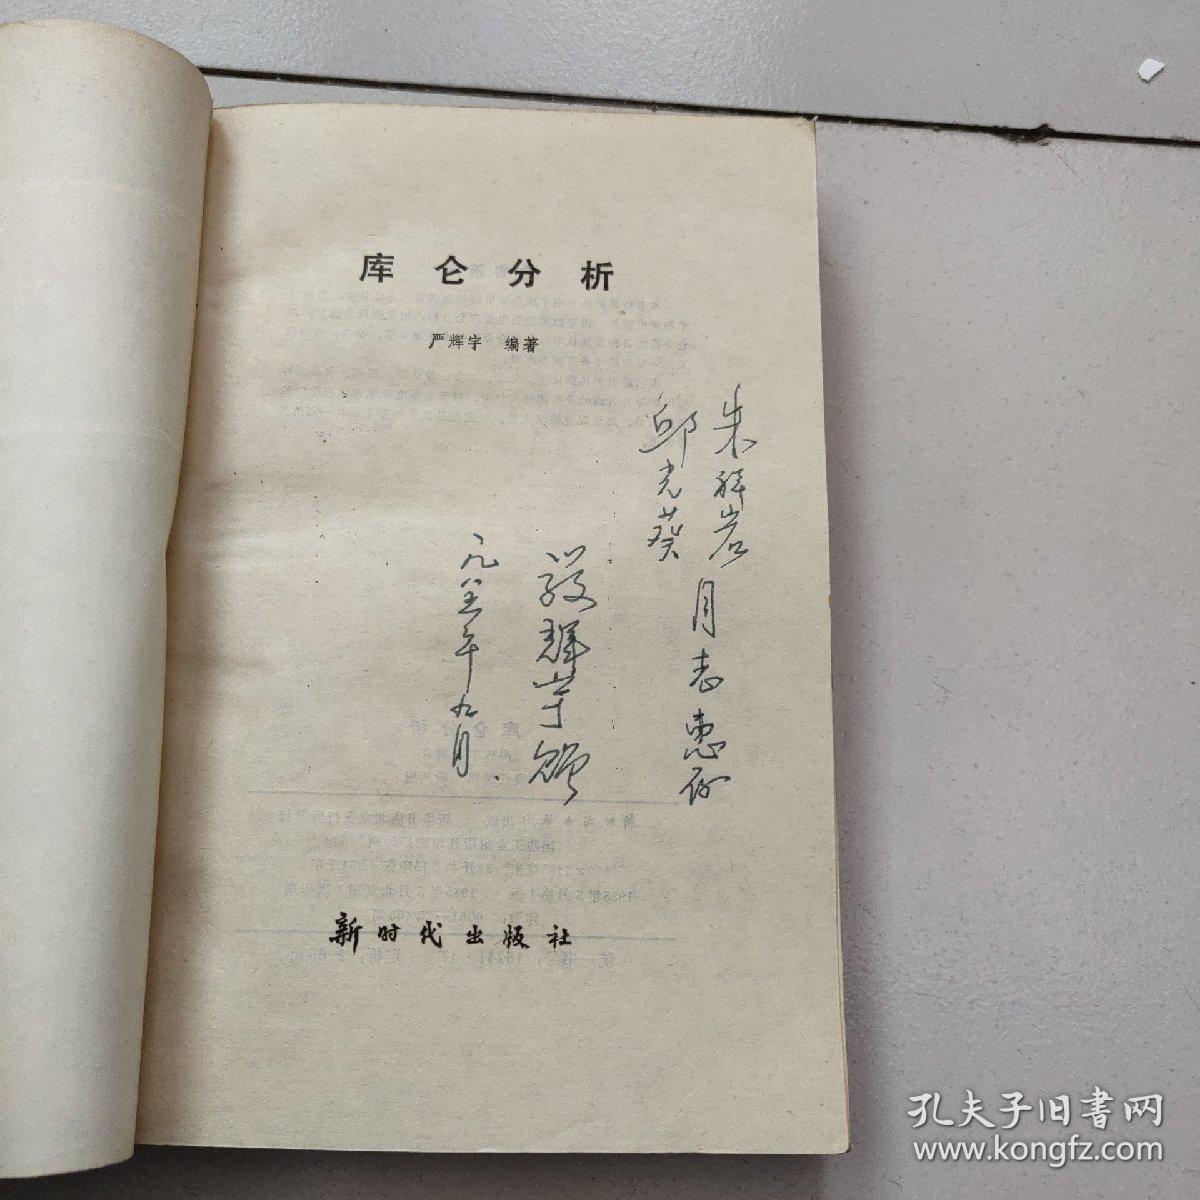 库仑分析
严辉宇 编著
朱祥岩
邱光葵
同志惠存
严辉宇赠
一九八五年九月
新时代出版社
孔夫子旧书网
www.kongfz.com